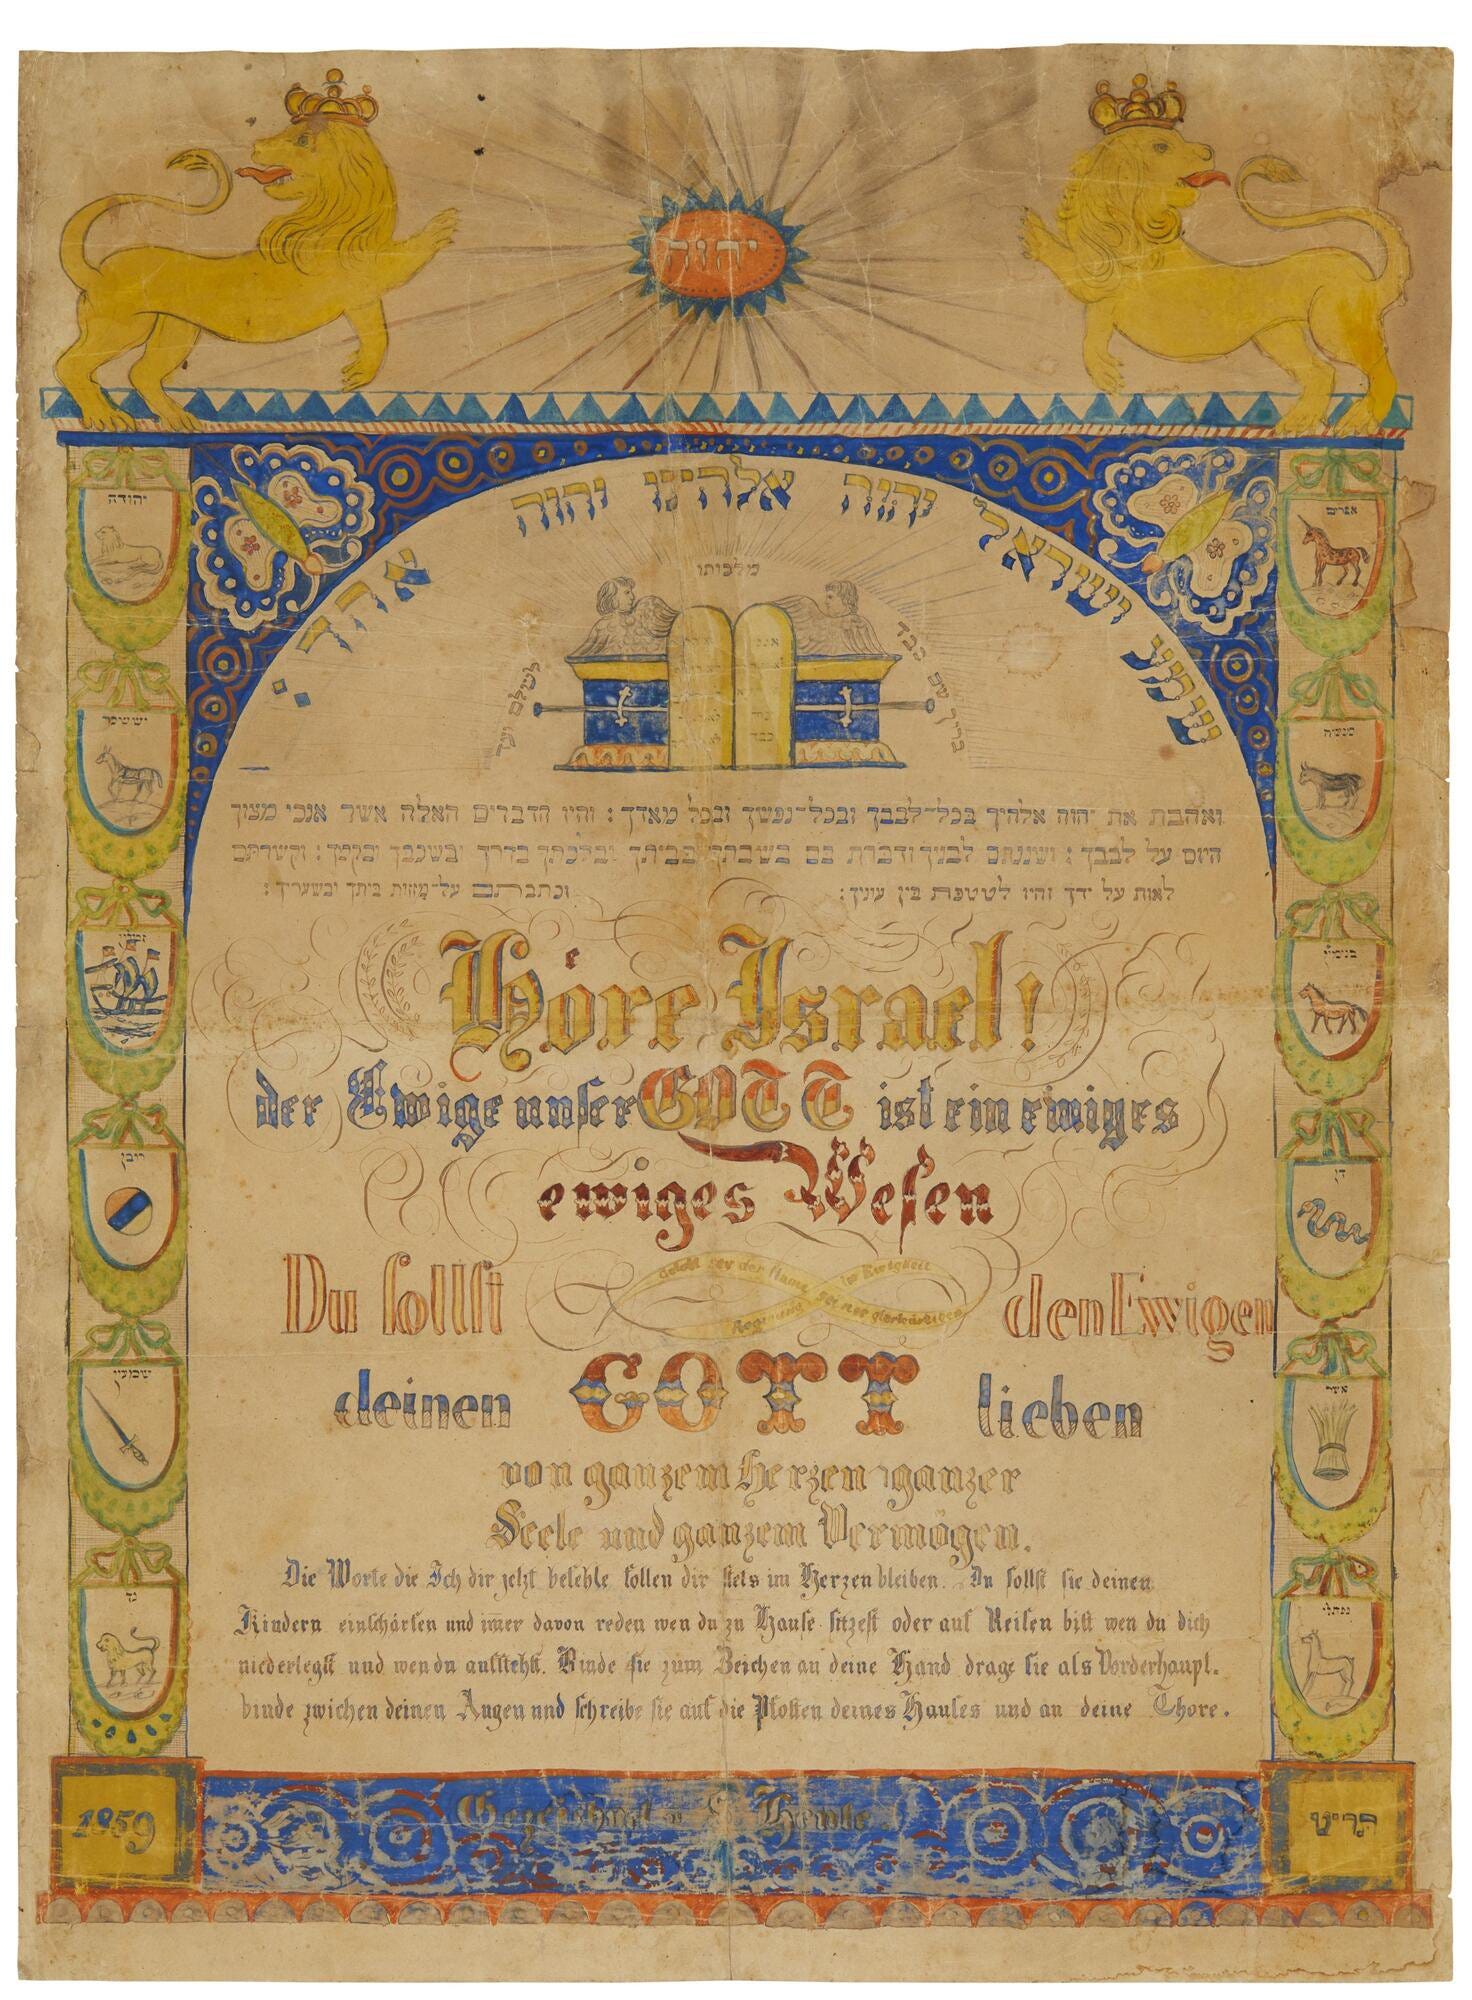 יהוה
שמע ישראל יהוה אלהינו יהוה אחד
מלכותו
ברוך שם כבד
לעולם ועד
ואהבת את יהוה אלהיך בכל־לבבך ובכל־נפשך ובכל מאדך : והיו הדברים האלה אשר אנכי מצוך
היום על לבבך : ושננתם לבניך ודברת בם בשבתך בביתך ובלכתך בדרך ובשכבך ובקמך : וקשרתם
לאות על ידך והיו לטטפת בין עיניך : וכתבתם על־מזוות ביתך ובשעריך :
Höre Israel!
der Ewige unser GOTT ist ein einiges
ewiges Wesen
Du sollst den Ewigen
Gelobt sey der Name
in Ewigkeit
deinen GOTT lieben
von ganzem Herzen ganzer
Seele und ganzem Vermögen.
Die Worte die Ich dir jetzt befehle sollen dir stets im Herzen bleiben. Du sollst sie deinen
Kindern einschärfen und im̄er davon reden wen du zu Hause sitzest oder auf Reisen bist wen du dich
niederlegst und wen du aufstehst. Binde sie zum Zeichen an deine Hand drage sie als Vorderhaupt.
binde zwichen deinen Augen und schreibe sie auf die Pfosten deines Hauses und an deine Thore.
יהודה
יששכר
זבולון
ריבן
שמעון
גד
אפרים
מנשה
בנימין
דן
אשר
נפתלי
1859
Gezeichnet v.
תריט